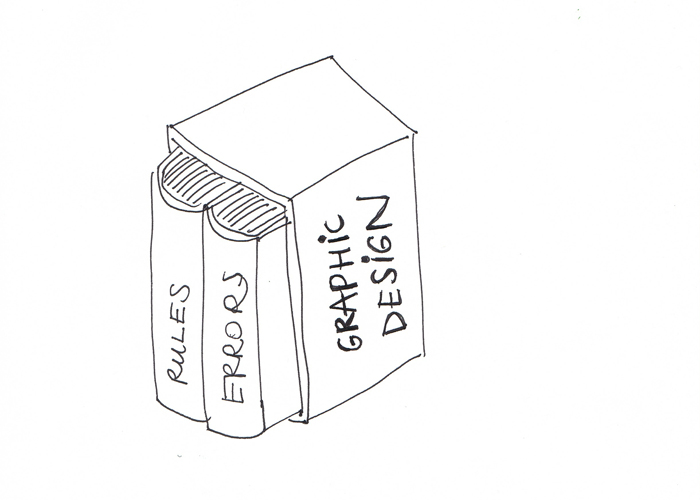 RULES
ERRORS
GRAPHIC
DESIGN